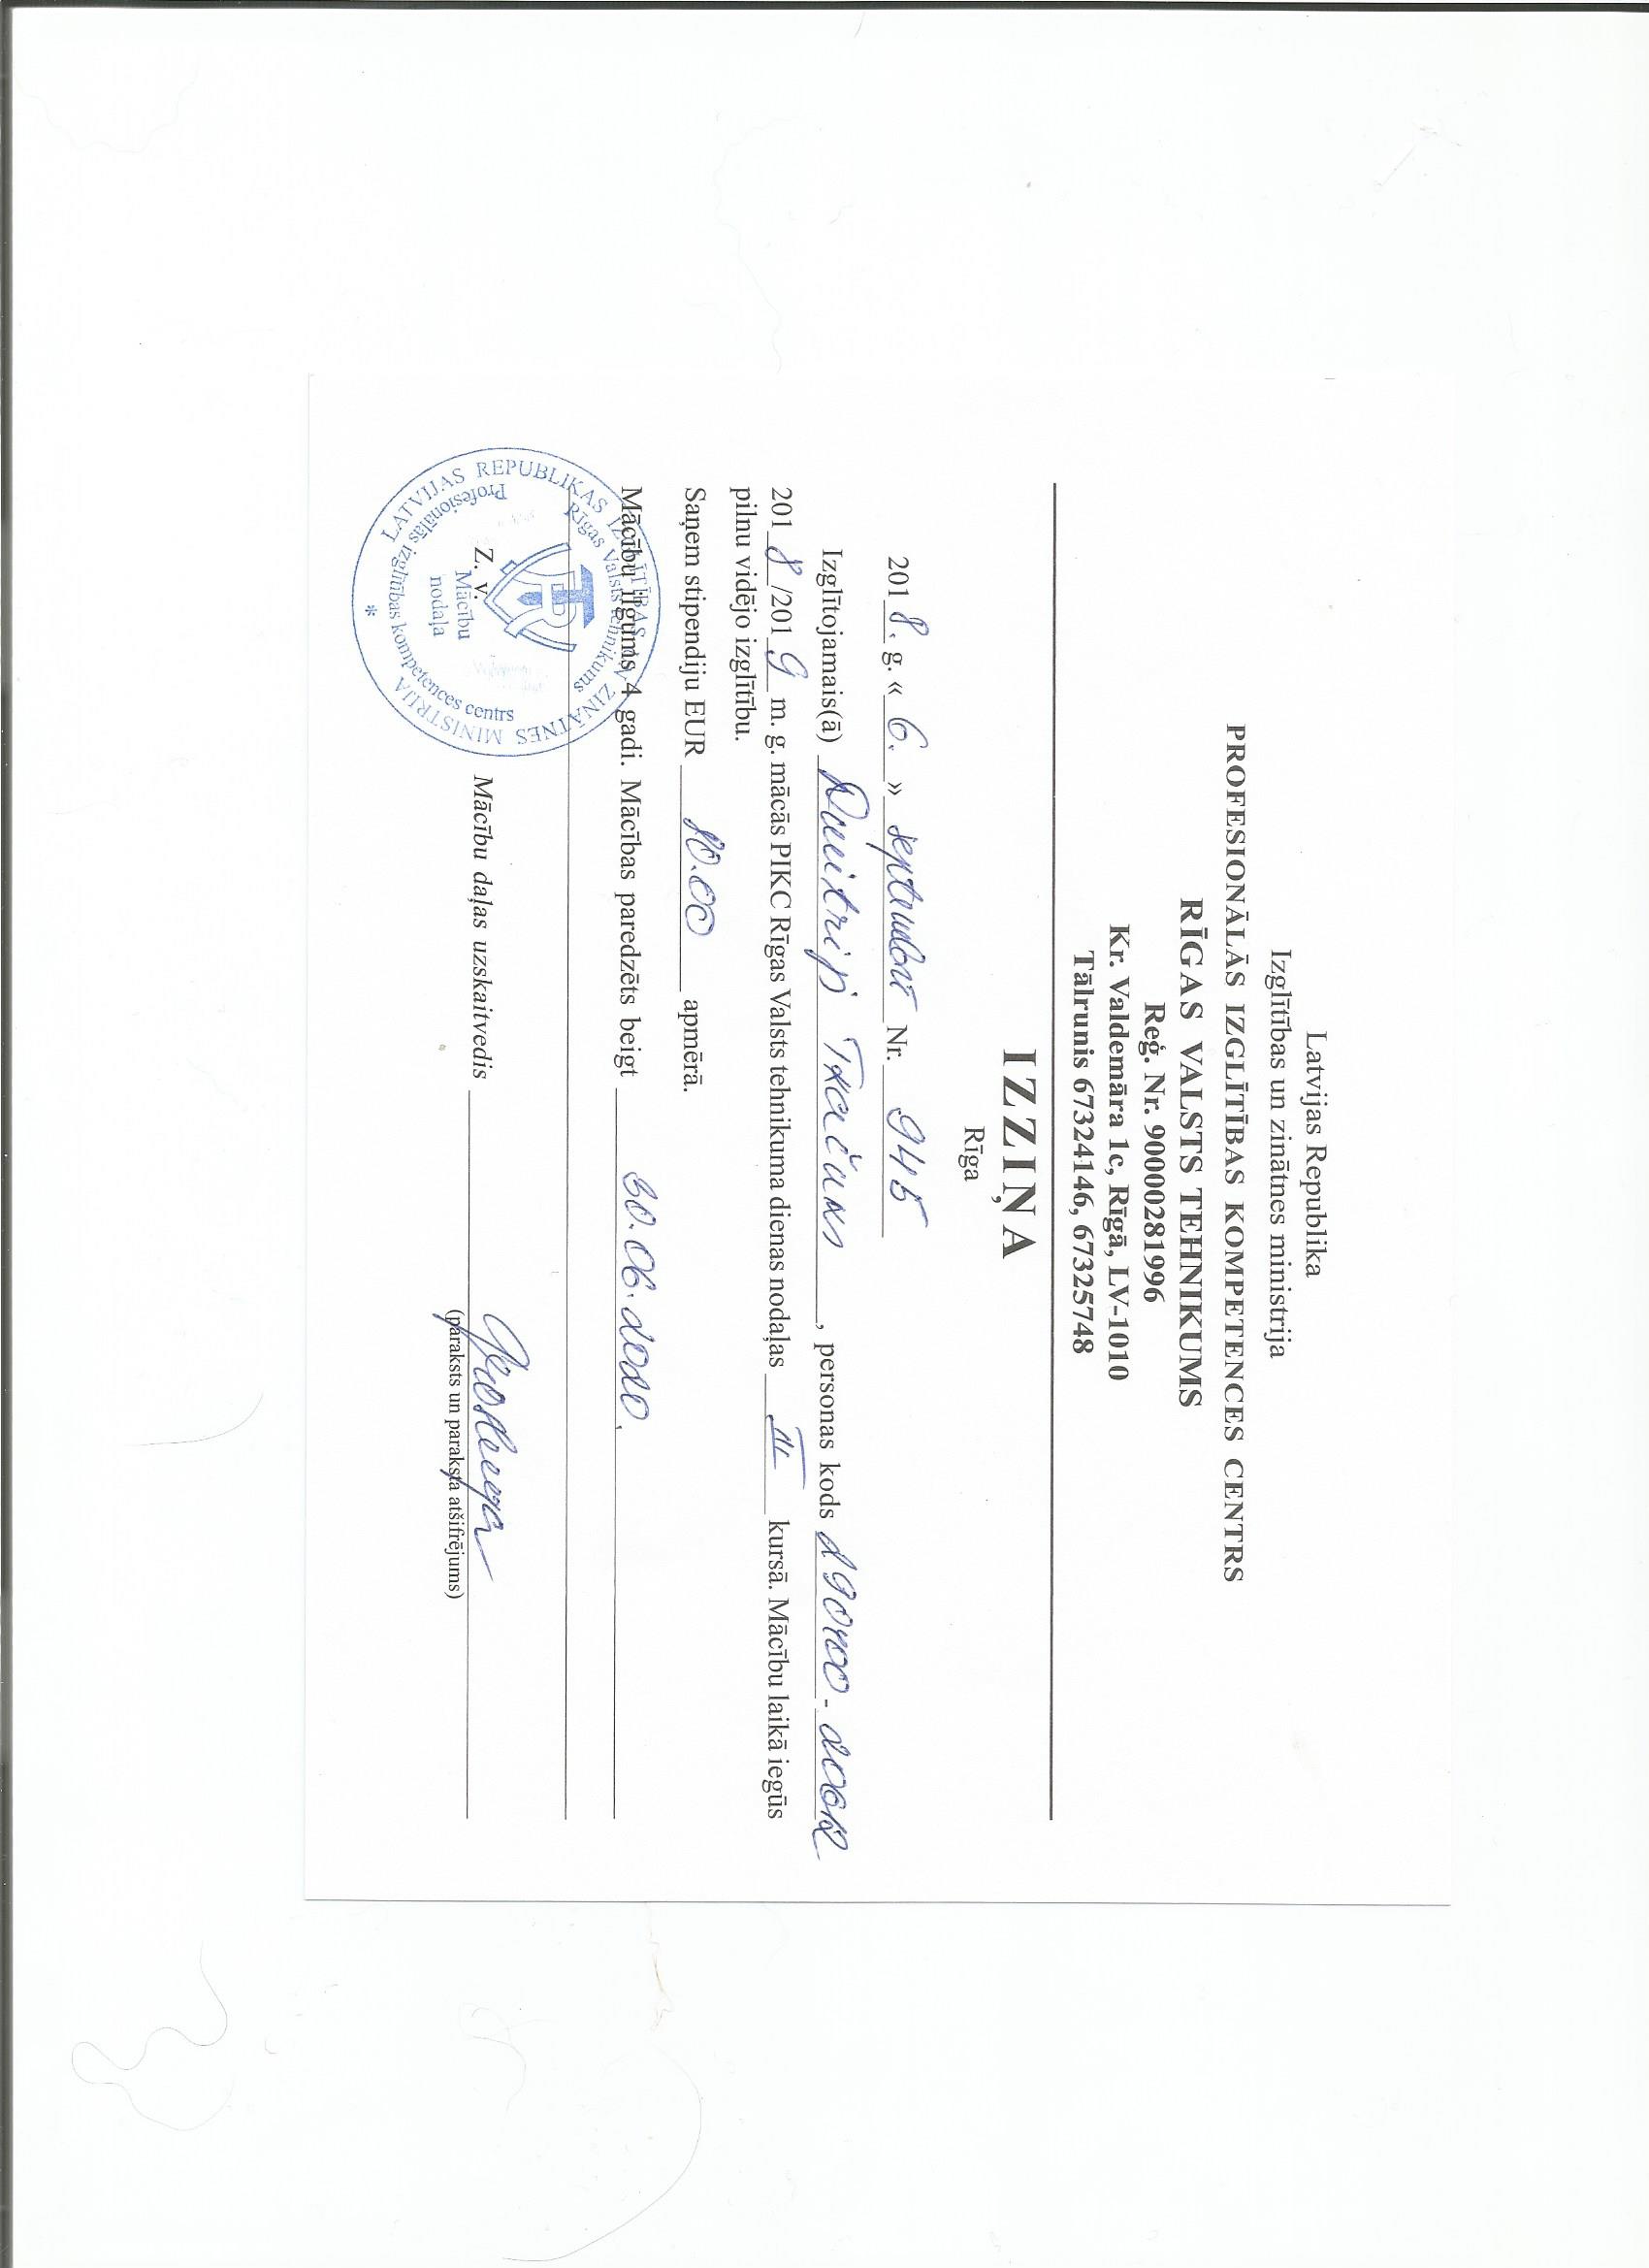 Latvijas Republika
Izglītības un zinātnes ministrija
PROFESIONĀLĀS IZGLĪTĪBAS KOMPETENCES CENTRS
RĪGAS VALSTS TEHNIKUMS
Reģ. Nr. 90000281996
Kr. Valdemāra 1c, Rīgā, LV-1010
Tālrunis 67324146, 67325748
IZZIŅA
Rīga
2018. g. « 6. » septembrī Nr. 945
Izglītojamais(ā) Dmitrijs Tkačuks, personas kods
2018/2019 m. g. mācās PIKC Rīgas Valsts tehnikuma dienas nodaļas III kursā. Mācību laikā iegūs
pilnu vidējo izglītību.
Saņem stipendiju EUR apmērā.
Mācību ilgums 4 gadi. Mācības paredzēts beigt 30.06.2020.
Z. v.
Mācību daļas uzskaitvedis
(paraksts un paraksta atšifrējums)
LATVIJAS REPUBLIKAS IZGLĪTĪBAS UN ZINĀTNES MINISTRIJA
Rīgas Valsts tehnikums
Profesionālās izglītības kompetences centrs
Mācību
nodaļa